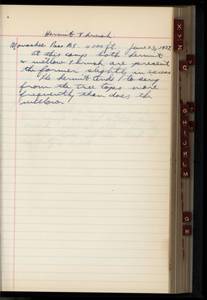 Hermit Thrush
Pass B.C. 6000 ft. June 23, 1927
At this camp both hermit
& willow thrush are present
the former slightly in excess
The hermit tends to sing
from the tree tops more
frequently than does the
willow.
X Y Z
C
G
H I J K L M